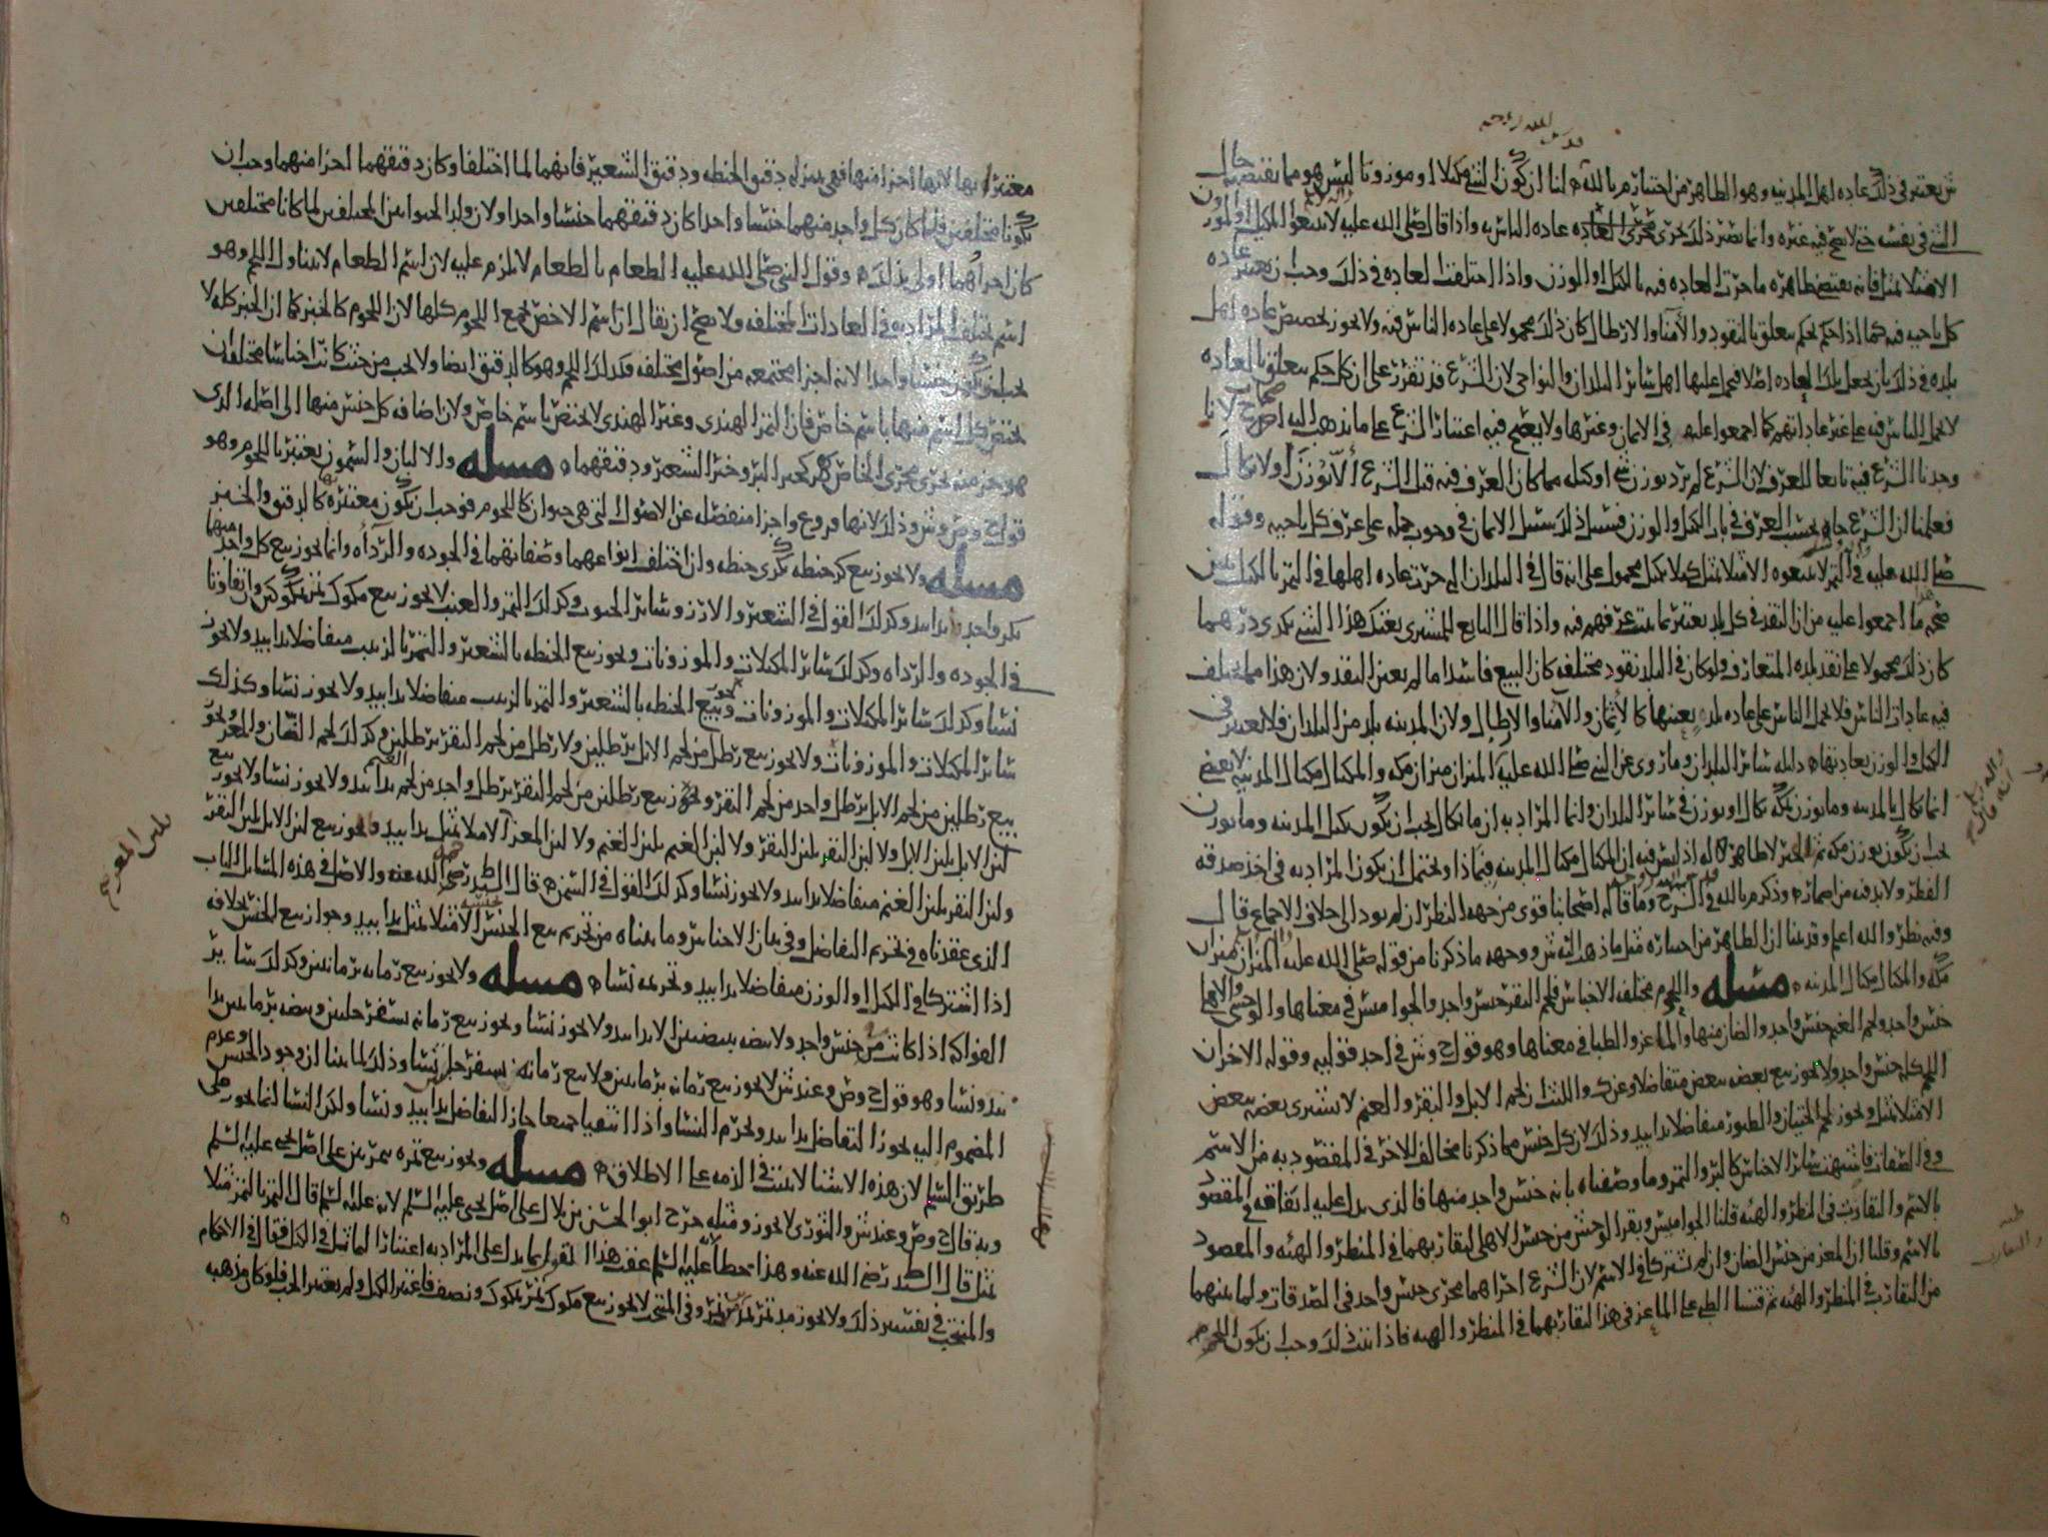 قدس الله روحه
ثم يعتبر في ذلك عاده اهل المدينه وهو الظاهر من اختيار م بالله لنا ان كون الشي مكيلا او موزونا ليس هو مما يقتضيه حال
الشي في نفسه حتى لا يصح فيه غيره وانما يصير ذلك بجري مجرى العاده عاده الناس به واذا قال صلى الله عليه لا تبيعوا المكيل او الموزون
الا مثلا بمثل فانه يقتضي ظاهره ما جرت العاده فيه بالكيل او الوزن واذا اختلفت العاده في ذلك وجب ان يعتبر عاده
كل ناحيه فيه كما اذا حكم بحكم يتعلق بالنقود والأمنا والارطال كان ذلك محمولا على عاده الناس فيه ولا يجوز تخصيص عاده اهل
بلده في ذلك بان يجعل تلك العاده اصلا فيحمل عليها اهل سائر البلدان والنواحي لان الشرع قد تقرر على ان كل حكم يتعلق بالعاده
لا يحمل الناس فيه على غير عاداتهم كما اجمعوا عليه في الايمان وغيرها ولا يصح فيه اعتبار الشرع على ما يذهب اليه اصحاب ح لانا
وجدنا الشرع فيه تابعا للعرف لان الشرع لم يرد بوزن شي او كيله مما كان العرف فيه قبل الشرع ألا يوزن او لا يكال
فعلمنا ان الشرع جاء بحسب العرف في باب الكيل والوزن فسبيل ذلك سبيل الايمان في وجوب حمله على عرف كل ناحيه وقوله
صلى الله عليه في التمر لا تبيعوه الا مثلا بمثل كيلا بكيل محمول على انه قال في البلدان التي جرت عاده اهلها في التمر بالكيل يبين
صحه هذا ما اجمعوا عليه من ان النقد في كل بلد يعتبر بما يثبت عرفهم فيه واذا قال البايع للمشتري بعتك هذا الشي بكذى درهما
كان ذلك محمولا على نقد بلده المتعارف ولو كان في البلد نقود مختلفه كان البيع فاسدا ما لم يعين النقد ولان هذا مما يختلف
فيه عادات الناس فلا يحمل الناس على عاده بلد بعينها كالأثمان والأمنا والارطال ولان المدينه بلد من البلدان فلا يعتبر في
الكيل والوزن بعادتها دليله سائر البلدان وما روي عن النبي صلى الله عليه الميزان ميزان مكه والمكيال مكيال المدينه لا يقتضي
انما كان بالمدينه وما يوزن بمكه يكال او يوزن في سائر البلدان وانما المراد به ان ما يكال يجب ان يكون بكيل المدينه وما يوزن
يجب ان يكون بوزن مكه ثم الخبر لا ظاهر له اذ ليس فيه ان المكيال مكيال المدينه فيماذا ويحتمل ان يكون المراد به في اخذ صدقه
الفطر ولا بد فيه من اضمار وذكر م بالله في الشرح وما قاله اصحابنا قوى من جهه النظر ان لم يود الى خلاف الاجماع قال
وفيه نظر والله اعلم وقد بينا ان الظاهر من اختياره مثل ما ذهب اليه ش ووجهه ما ذكرنا من قوله صلى الله عليه الميزان ميزان
مكه والمكيال مكيال المدينه مسله واللحوم مختلفه الاجناس فلحم البقر جنس واحد والجواميس في معناها والوحشي والاهلي
جنس واحد ولحم الغنم جنس واحد والضان منها والماعز والظبا في معناها وهو قول ح وش في احد قوليه وقوله الاخر ان
اللحم كله جنس واحد ولا يجوز بيع بعضه ببعض متفاضلا وعن ك والليث ان لحم الابل والبقر والغنم لا يشترى بعضه ببعض
الا مثلا بمثل ويجوز لحم الحيتان والطيور متفاضلا يدا بيد وذلك لان كل جنس مما ذكرنا مخالف للاخر في المقصود به من الاسم
وفي الصفات فاشبهت سائر الاجناس كالبر والتمر وما وصفناه بانه جنس واحد منها فالذي يدل عليه اتفاقه في المقصود
بالاسم والتقارب في المنظر والهيئه قلنا الجواميس وبقر الوحش من جنس الاهلي لتقاربهما في المنظر والهيئه والمقصود
بالاسم وقلنا ان المعز من جنس الضان وان لم تشترك في الاسم لان الشرع اجراهما مجرى جنس واحد في الصدقات ولما بينهما
من التقارب في المنظر والهيئه ثم قسنا الظبي على الماعز في هذا لتقاربهما في المنظر والهيئه فاذا ثبت ذلك وجب ان يكون اللحوم
معتبرا بها لانها اجزا منها فهي بمنزله دقيق الحنطه ودقيق الشعير فانهما لما اختلفا وكان دقيقهما اجزا منهما وجب ان
يكونا مختلفين فلما كان كل واحد منهما جنسا واحدا كان دقيقهما جنسا واحدا ولان ولد الحيوانين المختلفين لما كانا مختلفين
كان اجزاهما اولى بذلك وقول النبي صلى الله عليه الطعام بالطعام لا يلزم عليه لان اسم الطعام لا يتناول اللحم وهو
اسم يختلف المراد به في العادات المختلفه ولا يصح ان يقال ان اسم الاخص يجمع اللحوم كلها لان اللحوم كالخبز كما ان الخبز كله لا
يجب ان يكون جنسا واحدا لانه اجزا مجتمعه من اصول مختلفه فكذلك اللحم وهو كالدقيق ايضا ولا يجب من حيث كانت اجناسا مختلفه ان
يختص كل اسم منها باسم خاص فان التمر الهندي وغير الهندي لا يختص باسم خاص ولان اضافه كل جنس منها الى اصله الذي
هو جزء منه يجري مجرى الخاص كخبز البر وخبز الشعير ودقيقهما مسله والالبان والسمون يعتبر باللحوم وهو
قول ح وص وش وذلك لانها فروع واجزا منفصله عن الاصول التي هي حيوان كاللحوم فوجب ان يكون معتبره بها كالدقيق والخبز
مسله ولا يجوز بيع كر حنطه بكري حنطه وان اختلف انواعهما وصفاتهما في الجوده والرداه وانما يجوز بيع كل واحد منهما
بكر واحد يدا بيد وكذلك القول في الشعير والارز وسائر الحبوب وكذلك التمر والعنب لا يجوز بيع مكوك تمر بمكوكين وان تفاوتا
في الجوده والرداه وكذلك سائر المكيلات والموزونات ويجوز بيع الحنطه بالشعير والتمر بالزبيب متفاضلا يدا بيد ولا يجوز
نسا وكذلك سائر المكيلات والموزونات ويجوز بيع الحنطه بالشعير والتمر بالزبيب متفاضلا يدا بيد ولا يجوز نسا وكذلك
سائر المكيلات والموزونات ولا يجوز بيع رطل من لحم الابل برطلين ولا رطل من لحم البقر برطلين وكذلك لحم الضان والمعز ويجوز
بيع رطلين من لحم الابل برطل واحد من لحم البقر ويجوز بيع رطلين من لحم البقر برطل واحد من لحم الغنم يدا بيد ولا يجوز نسا ولا يجوز بيع
لبن الابل بلبن الابل ولا لبن البقر بلبن البقر ولا لبن الغنم بلبن الغنم ولا لبن المعز الا مثلا بمثل يدا بيد ويجوز بيع لبن الابل بلبن البقر
ولبن البقر بلبن الغنم متفاضلا يدا بيد ولا يجوز نسا وكذلك القول في السمن قال السيد رضي الله عنه والاصل في هذه المسايل الباب
الذي عقدناه في تحريم التفاضل وفي بيان الاجناس وما بيناه من تحريم بيع الجنس بجنسه الا مثلا بمثل يدا بيد وجواز بيع الجنس بخلافه
اذا اشتركا في الكيل او الوزن متفاضلا يدا بيد وتحريمه نسا مسله ولا يجوز بيع رمانه برمانتين وكذلك سائر
الفواكه اذا كانت من جنس واحد ولا بيضه ببيضتين الا يدا بيد ولا يجوز نسا ويجوز بيع رمانه بسفرجلتين وبيضه برمانتين يدا
بيد ونسا وهو قول ح وص وعند ش لا يجوز بيع رمانه برمانتين ولا بيع رمانه بسفرجلتين نسا وذلك لما بينا ان وجود الجنس وعدم
المضموم اليه يجوز التفاضل يدا بيد ويحرم النسا واذا انتفيا جميعا جاز التفاضل يدا بيد ونسا ولكن النسا انما يجوز على
طريق السلم لان هذه الاشيا لا يثبت في الذمه على الاطلاق مسله ويجوز بيع تمره بتمرتين على اصل يحيى عليه السلم
وبه قال ح وص وعند ش والثوري لا يجوز ومثله خرج ابو الحسن بن بلال على اصل يحيى عليه السلم لانه عليه السلم قال التمر بالتمر مثلا
بمثل قال السيد رضي الله عنه وهذا خطأ لانه عليه السلم عقب هذا القول بما يدل على المراد به اعتبارا لمماثل في الكيل فقال في الاحكام
والمنتخب في تفسير ذلك ولا يجوز مد تمر بمدي تمر وفي المنتخب لا يجوز بيع مكوك تمر بمكوك ونصف فاعتبر الكيل ولم يعتبر الحب فلو كان مذهبه
بلبن المعز